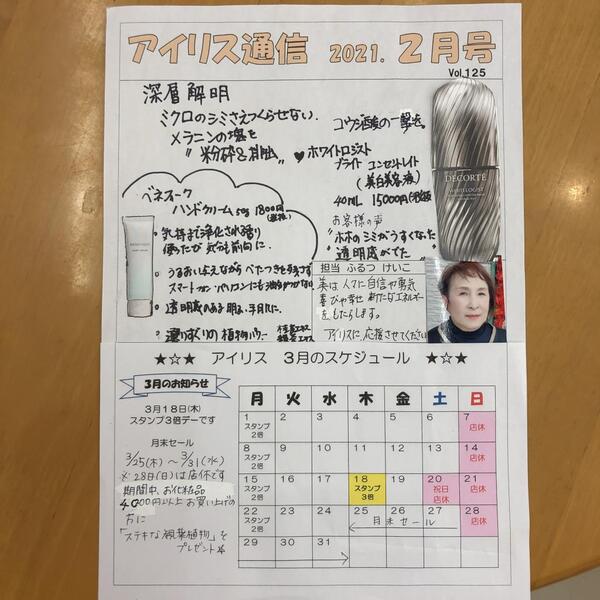 アイリス通信 2021. 2月号
Vol.125
深層解明
ミクロのシミさえつくらせない.
メラニンの塊を
"粉砕&排出"
コウジ酸の一撃を。
♥ホワイトロジスト
ブライト コンセントレイト
(美白美容液)
40ML 15000円(税抜)
お客様の声
"ホホのシミがうすくなった"
"透明感がでた"
DECORTÉ
WHITELOGIST
ハンドクリーム 50g 1800円(税抜)
・気持まで浄化される香り
使ったが 気分も前向に.
・うるおいよえながら べたつきを残さず
スマートフォン・パソコンにも
・透明感のある明るい手目元に.
・選りすぐりの植物パワー
担当 ふるつ けいこ
美は人々に自信や勇気
喜びや幸せ 新たなエネルギー
をもたらします。
アイリスに応援させてください
★☆★ アイリス 3月のスケジュール ★☆★
3月のお知らせ
3月18日(木)
スタンプ3倍デーです
月末セール
3/25(木)～3/31(水)
※28日(日)は店休です
期間中、お化粧品
4,000円以上お買い上げの
方に
「ステキな観葉植物」を
プレゼント
月 火 水 木 金 土 日
1 2 3 4 5 6 7
スタンプ2倍 店休
8 9 10 11 12 13 14
スタンプ2倍 店休
15 16 17 18 19 20 21
スタンプ2倍 スタンプ3倍 祝日店休 店休
22 23 24 25 26 27 28
スタンプ2倍 月末セール 店休
29 30 31